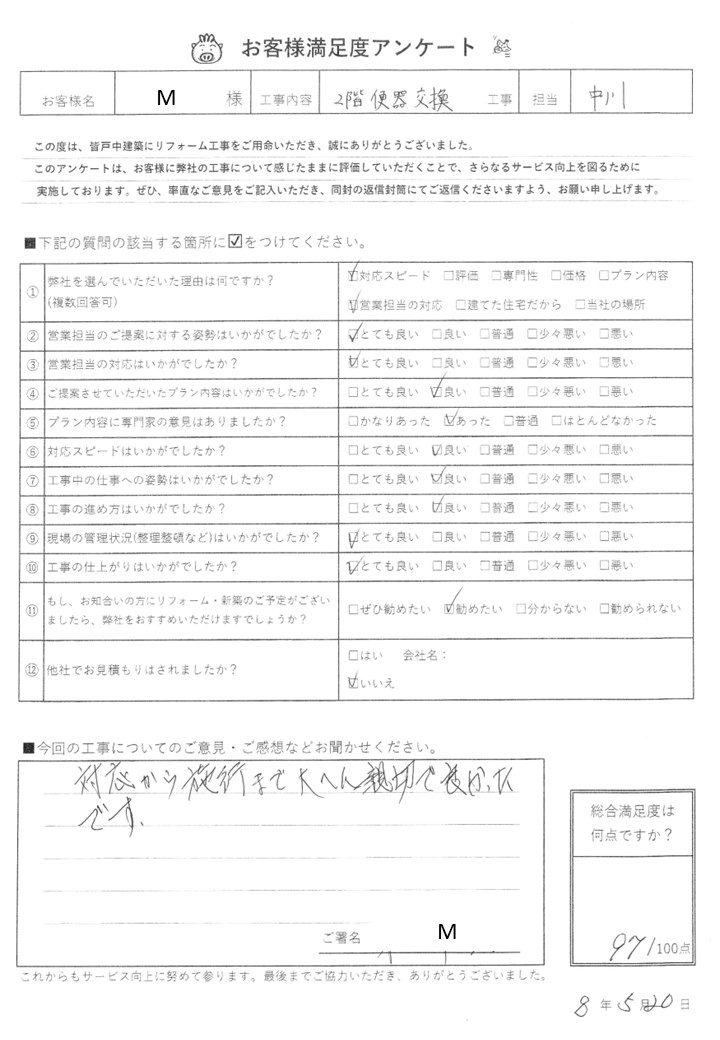 お客様満足度アンケート
お客様名 M 様 工事内容 2階便器交換 工事 担当 中川
この度は、皆戸中建築にリフォーム工事をご用命いただき、誠にありがとうございました。
このアンケートは、お客様に弊社の工事について感じたままに評価していただくことで、さらなるサービス向上を図るために
実施しております。ぜひ、率直なご意見をご記入いただき、同封の返信封筒にてご返信くださいますよう、お願い申し上げます。
■下記の質問の該当する箇所に☑をつけてください。
① 弊社を選んでいただいた理由は何ですか？
(複数回答可)
☑対応スピード □評価 □専門性 □価格 □プラン内容
☑営業担当の対応 □建てた住宅だから □当社の場所
② 営業担当のご提案に対する姿勢はいかがでしたか？ ☑とても良い □良い □普通 □少々悪い □悪い
③ 営業担当の対応はいかがでしたか？ ☑とても良い □良い □普通 □少々悪い □悪い
④ ご提案させていただいたプラン内容はいかがでしたか？ □とても良い ☑良い □普通 □少々悪い □悪い
⑤ プラン内容に専門家の意見はありましたか？ □かなりあった ☑あった □普通 □ほとんどなかった
⑥ 対応スピードはいかがでしたか？ □とても良い ☑良い □普通 □少々悪い □悪い
⑦ 工事中の仕事への姿勢はいかがでしたか？ □とても良い ☑良い □普通 □少々悪い □悪い
⑧ 工事の進め方はいかがでしたか？ □とても良い ☑良い □普通 □少々悪い □悪い
⑨ 現場の管理状況(整理整頓など)はいかがでしたか？ ☑とても良い □良い □普通 □少々悪い □悪い
⑩ 工事の仕上がりはいかがでしたか？ ☑とても良い □良い □普通 □少々悪い □悪い
⑪ もし、お知合いの方にリフォーム・新築のご予定がござい
ましたら、弊社をおすすめいただけますでしょうか？
□ぜひ勧めたい ☑勧めたい □分からない □勧められない
⑫ 他社でお見積もりはされましたか？
□はい 会社名：
☑いいえ
■今回の工事についてのご意見・ご感想などお聞かせください。
対応から施行まで大へん親切で良かった
です。
ご署名 M
総合満足度は
何点ですか？
97/100点
これからもサービス向上に努めて参ります。最後までご協力いただき、ありがとうございました。
8年5月20日